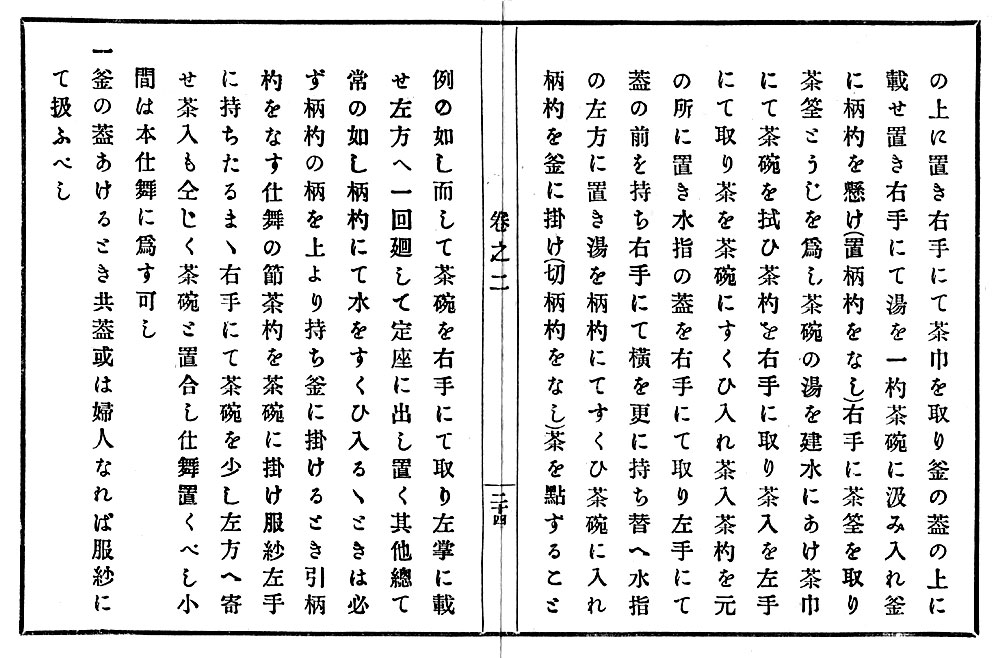 の上に置き右手にて茶巾を取り釜の葢の上に
載せ置き右手にて湯を一杓茶碗に汲み入れ釜
に柄杓を懸け(置柄杓をなし)右手に茶筌を取り
茶筌とうじを爲し茶碗の湯を建水にあけ茶巾
にて茶碗を拭ひ茶杓を右手に取り茶入を左手
にて取り茶を茶碗にすくひ入れ茶入茶杓を元
の所に置き水指の葢を右手にて取り左手にて
葢の前を持ち右手にて横を更に持ち替へ水指
の左方に置き湯を柄杓にてすくひ茶碗に入れ
柄杓を釜に掛け(切柄杓をなし)茶を點ずること
卷之二
二十四
例の如し而して茶碗を右手にて取り左掌に載
せ左方へ一回廻して定座に出し置く其他總て
常の如し柄杓にて水をすくひ入るヽときは必
ず柄杓の柄を上より持ち釜に掛けるとき引柄
杓をなす仕舞の節茶杓を茶碗に掛け服紗左手
に持ちたるまヽ右手にて茶碗を少し左方へ寄
せ茶入も仝じく茶碗と置合し仕舞置くべし小
間は本仕舞に爲す可し
一釜の葢あけるとき共葢或は婦人なれば服紗に
て扱ふべし